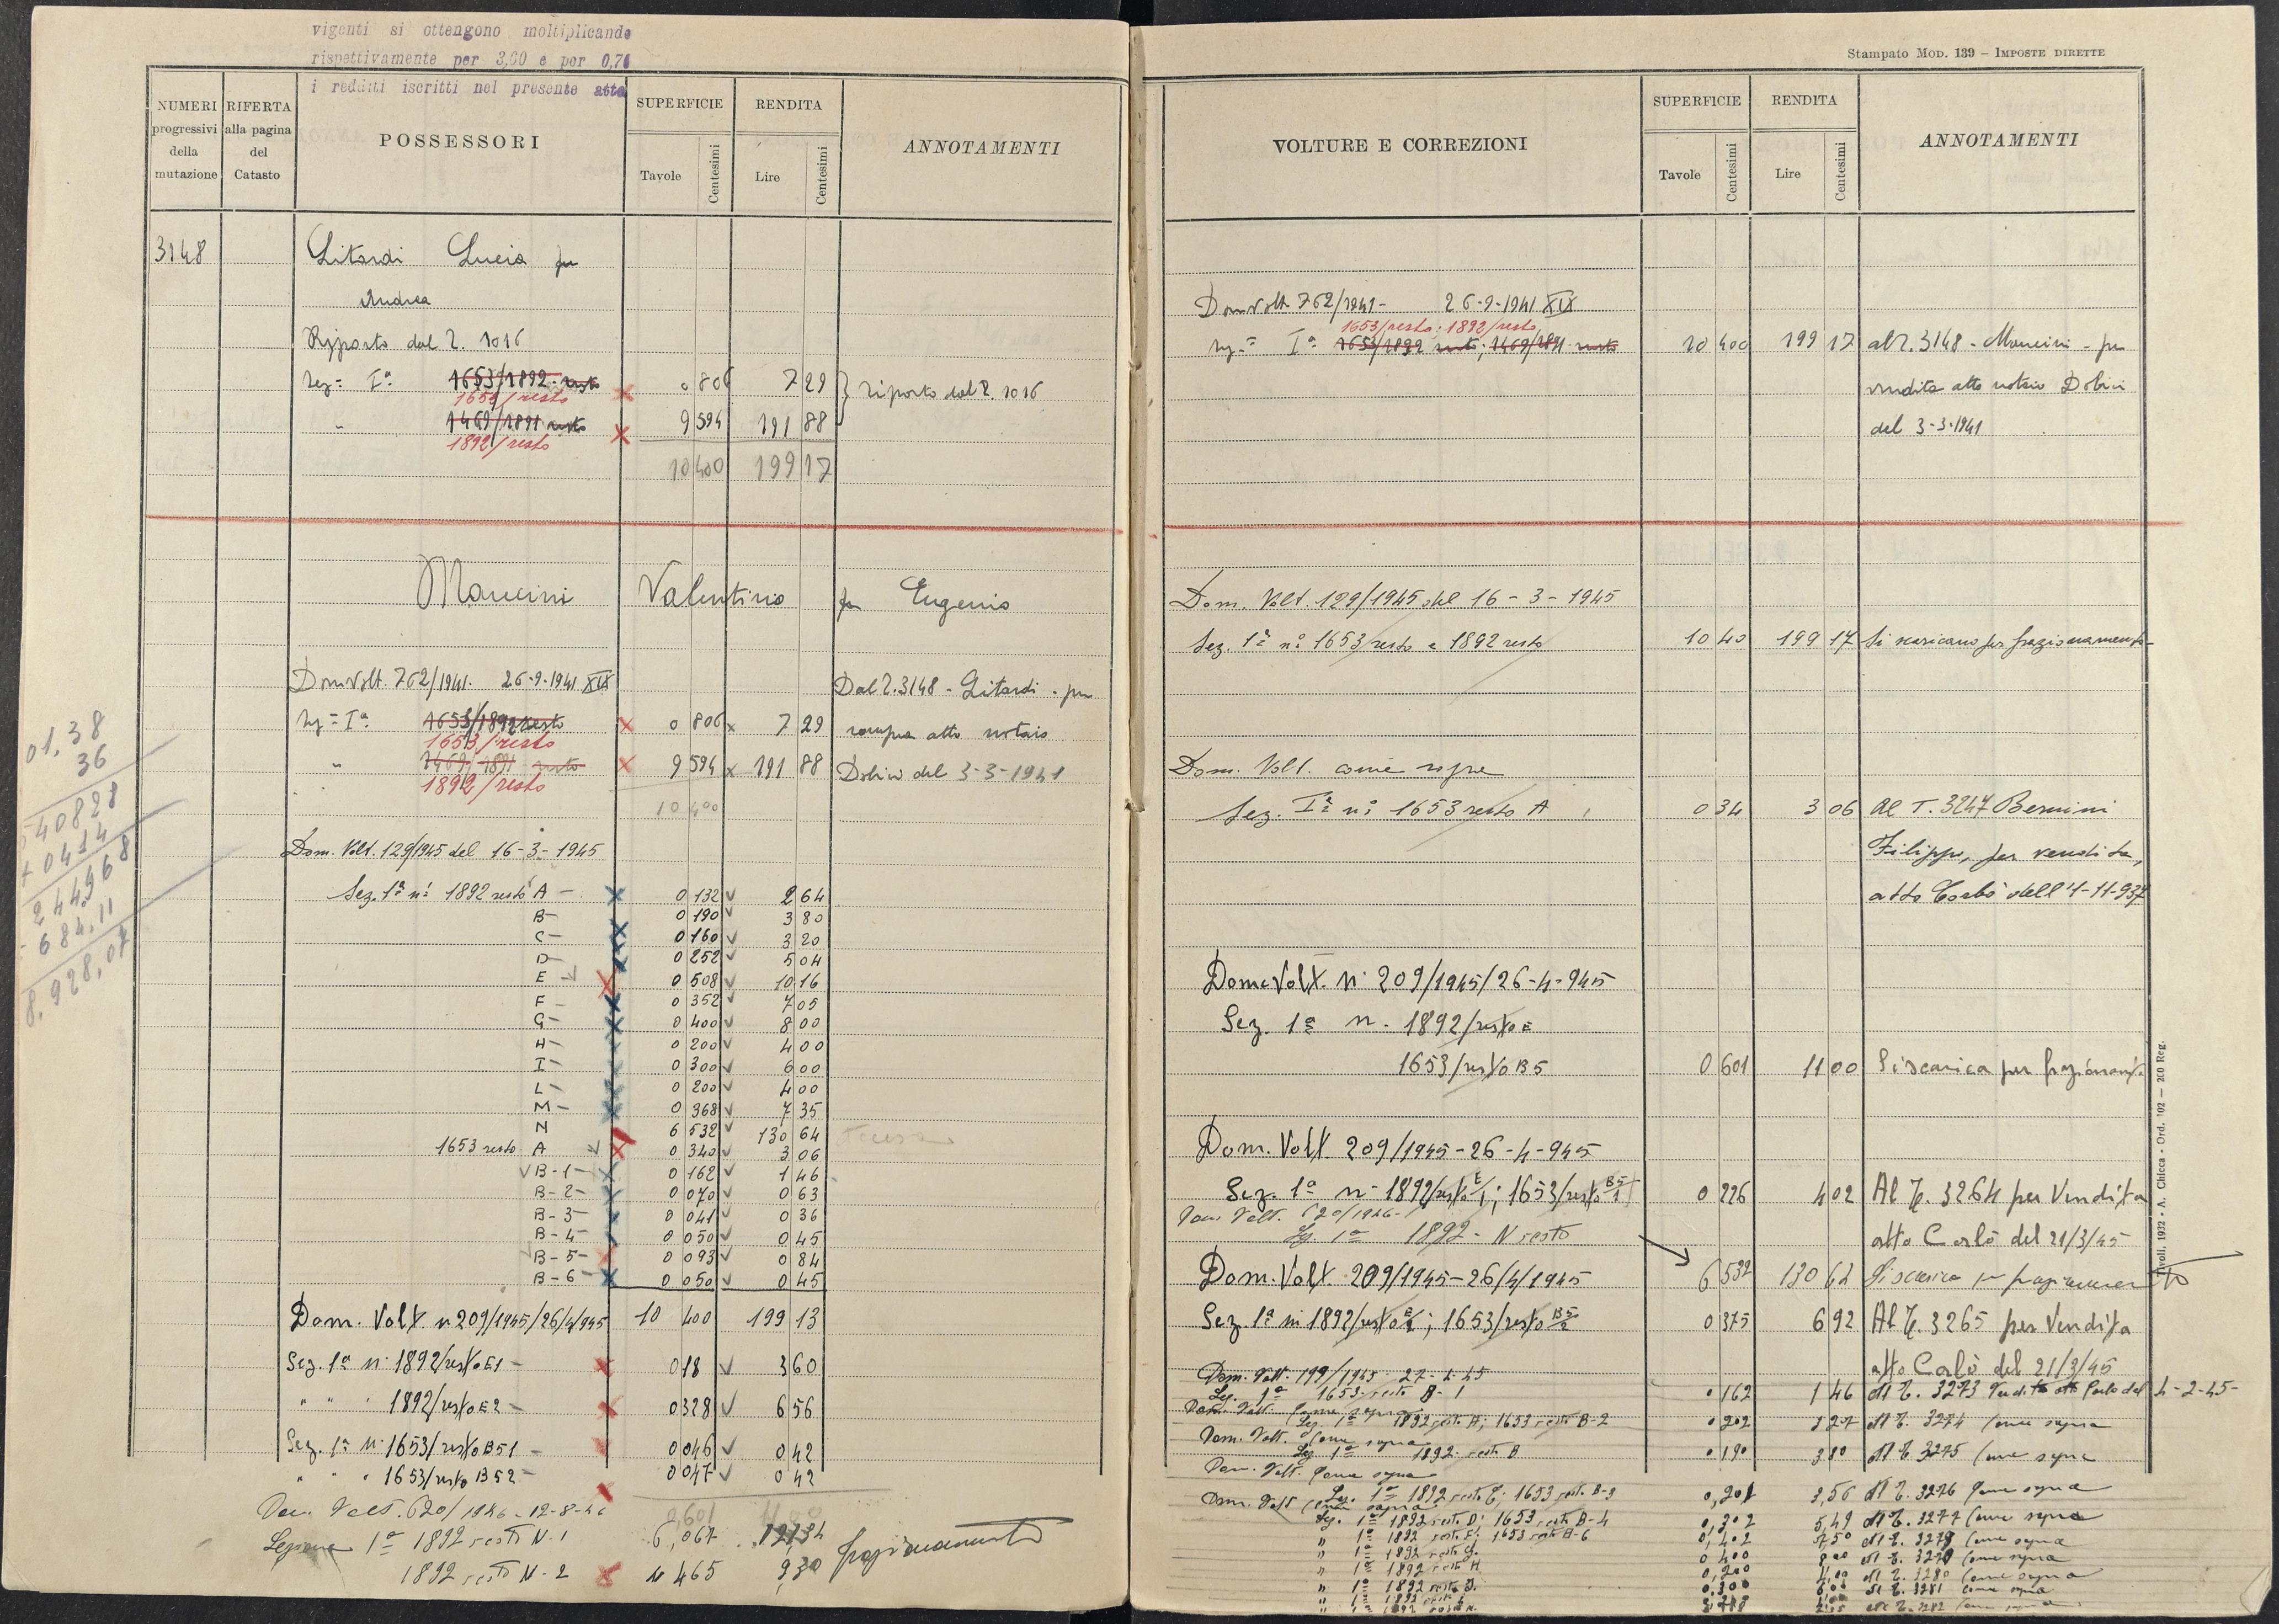 vigenti si ottengono moltiplicando
rispettivamente per 3,60 e per 0,71
i redditi iscritti nel presente atto
NUMERI progressivi della mutazione
RIFERTA alla pagina del Catasto
POSSESSORI
SUPERFICIE
Tavole Centesimi
RENDITA
Lire Centesimi
ANNOTAMENTI
3148 Litardi Lucia fu
Andrea
Riporto dal T. 1016
Sez = Iª 1653/1892 resto 0 806 7 29 riporto dal T. 1016
1653/resto
" 1469/1891 resto 9 594 191 88
1892/resto
10 400 199 17
Mancini Valentino fu Eugenio
Dom Volt. 762/1941. 26-9-1941 XIX Dal T. 3148 - Litardi - per
Sez = Iª 1653/1892 resto 0 806 7 29 compra atto notaio
1653/resto
" 1469/1891 resto 9 594 191 88 del 3-3-1941
1892/resto
10 400
Dom. Volt. 129/1945 del 16-3-1945
Sez. 1ª n: 1892 resto A - 0 132 2 64
B - 0 190 3 80
C - 0 160 3 20
D 0 252 5 04
E 0 508 10 16
F - 0 352 7 05
G - 0 400 8 00
H - 0 200 4 00
I - 0 300 6 00
L - 0 200 4 00
M - 0 368 7 35
N 6 532 130 64
1653 resto A 0 340 3 06
B-1- 0 162 1 46
B-2- 0 070 0 63
B-3- 0 041 0 36
B-4- 0 050 0 45
B-5- 0 093 0 84
B-6- 0 050 0 45
10 400 199 13
Dom. Volt. n 209/1945/26/4/945
Sez. 1ª n. 1892/resto E1 - 0 18 3 60
" " " 1892/resto E2 - 0 328 6 56
Sez. 1ª n. 1653/resto B51 - 0 046 0 42
" " " 1653/resto B52 - 0 047 0 42
0,601 11 00
Dom. Volt. 620/1946 - 12-8-46
Sezione 1ª 1892 resto N-1 6,067 frazionamento
1892 resto N-2 465 9,30
01,38
36
40828
+ 0414
24,4968
684,11
8.928,07
Stampato Mod. 139 – Imposte dirette
VOLTURE E CORREZIONI
SUPERFICIE
Tavole Centesimi
RENDITA
Lire Centesimi
ANNOTAMENTI
Dom Volt 762/1941 - 26-9-1941 XIX
1653/resto . 1892/resto
Sez = Iª 1653/1892 resto; 1469/1891 resto 10 400 199 17 al T. 3148 - Mancini - per
vendita atto notaio
del 3-3-1941
Dom. Volt. 129/1945 del 16-3-1945
Sez. 1ª n: 1653 resto e 1892 resto 10 40 199 17 Si scaricano per frazionamento
Dom. Volt. come sopra
Sez. Iª n: 1653 resto A 0 34 3 06 Al T. 3247 Bernini
Filippo, per vendita,
atto dell' 4-11-937
Dom. Volt. n. 209/1945/26-4-945
Sez. 1ª n. 1892/resto E
1653/resto B5 0 601 11 00 Si scarica per frazionam/to
Dom. Volt. 209/1945-26-4-945
Sez. 1ª n- 1892/resto E/1; 1653/resto B5/1 0 226 4 02 Al T. 3264 per Vendita
Dom. Volt. 620/1946- atto Carlò del 21/3/45
Sez. 1ª 1892 - N resto 6 532 Si scarica per frazionamento
Dom. Volt 209/1945-26/4/1945
Sez. 1ª n 1892/resto E/2; 1653/resto B5/2 0 375 6 92 Al T. 3265 per Vendita
atto Carlò del 21/3/45
Dom. Volt. 199/1945
Sez. 1ª 1653 resto B-1 0 162 1 46 Al T. 3273 Vendita atto
Dom. Volt. Come sopra
Sez. 1ª 1892 resto A; 1653 resto B-2 0 202 3 27 Al T. 3274 Come sopra
Dom. Volt. Come sopra
Sez. 1ª 1892 resto B 0 190 3 80 Al T. 3275 Come sopra
Dom. Volt. Come sopra
Sez. 1ª 1892 resto C; 1653 resto B-3 0,201 3,56 Al T. 3276 Come sopra
Dom. Volt. Come sopra
Sez. 1ª 1892 resto D; 1653 resto B-4 0,302 5,49 Al T. 3277 Come sopra
" 1ª 1892 resto F; 1653 resto B-6 0,402 7,50 Al T. 3278 Come sopra
" 1ª 1892 resto G. 0 400 8 00 Al T. 3279 Come sopra
" 1ª 1892 resto H 0,200 4,00 Al T. 3280 Come sopra
" 1ª 1892 resto I. 0,300 6,00 Al T. 3281 Come sopra
Tivoli, 1932 - A. Chicca - Ord. 102 — 200 Reg.